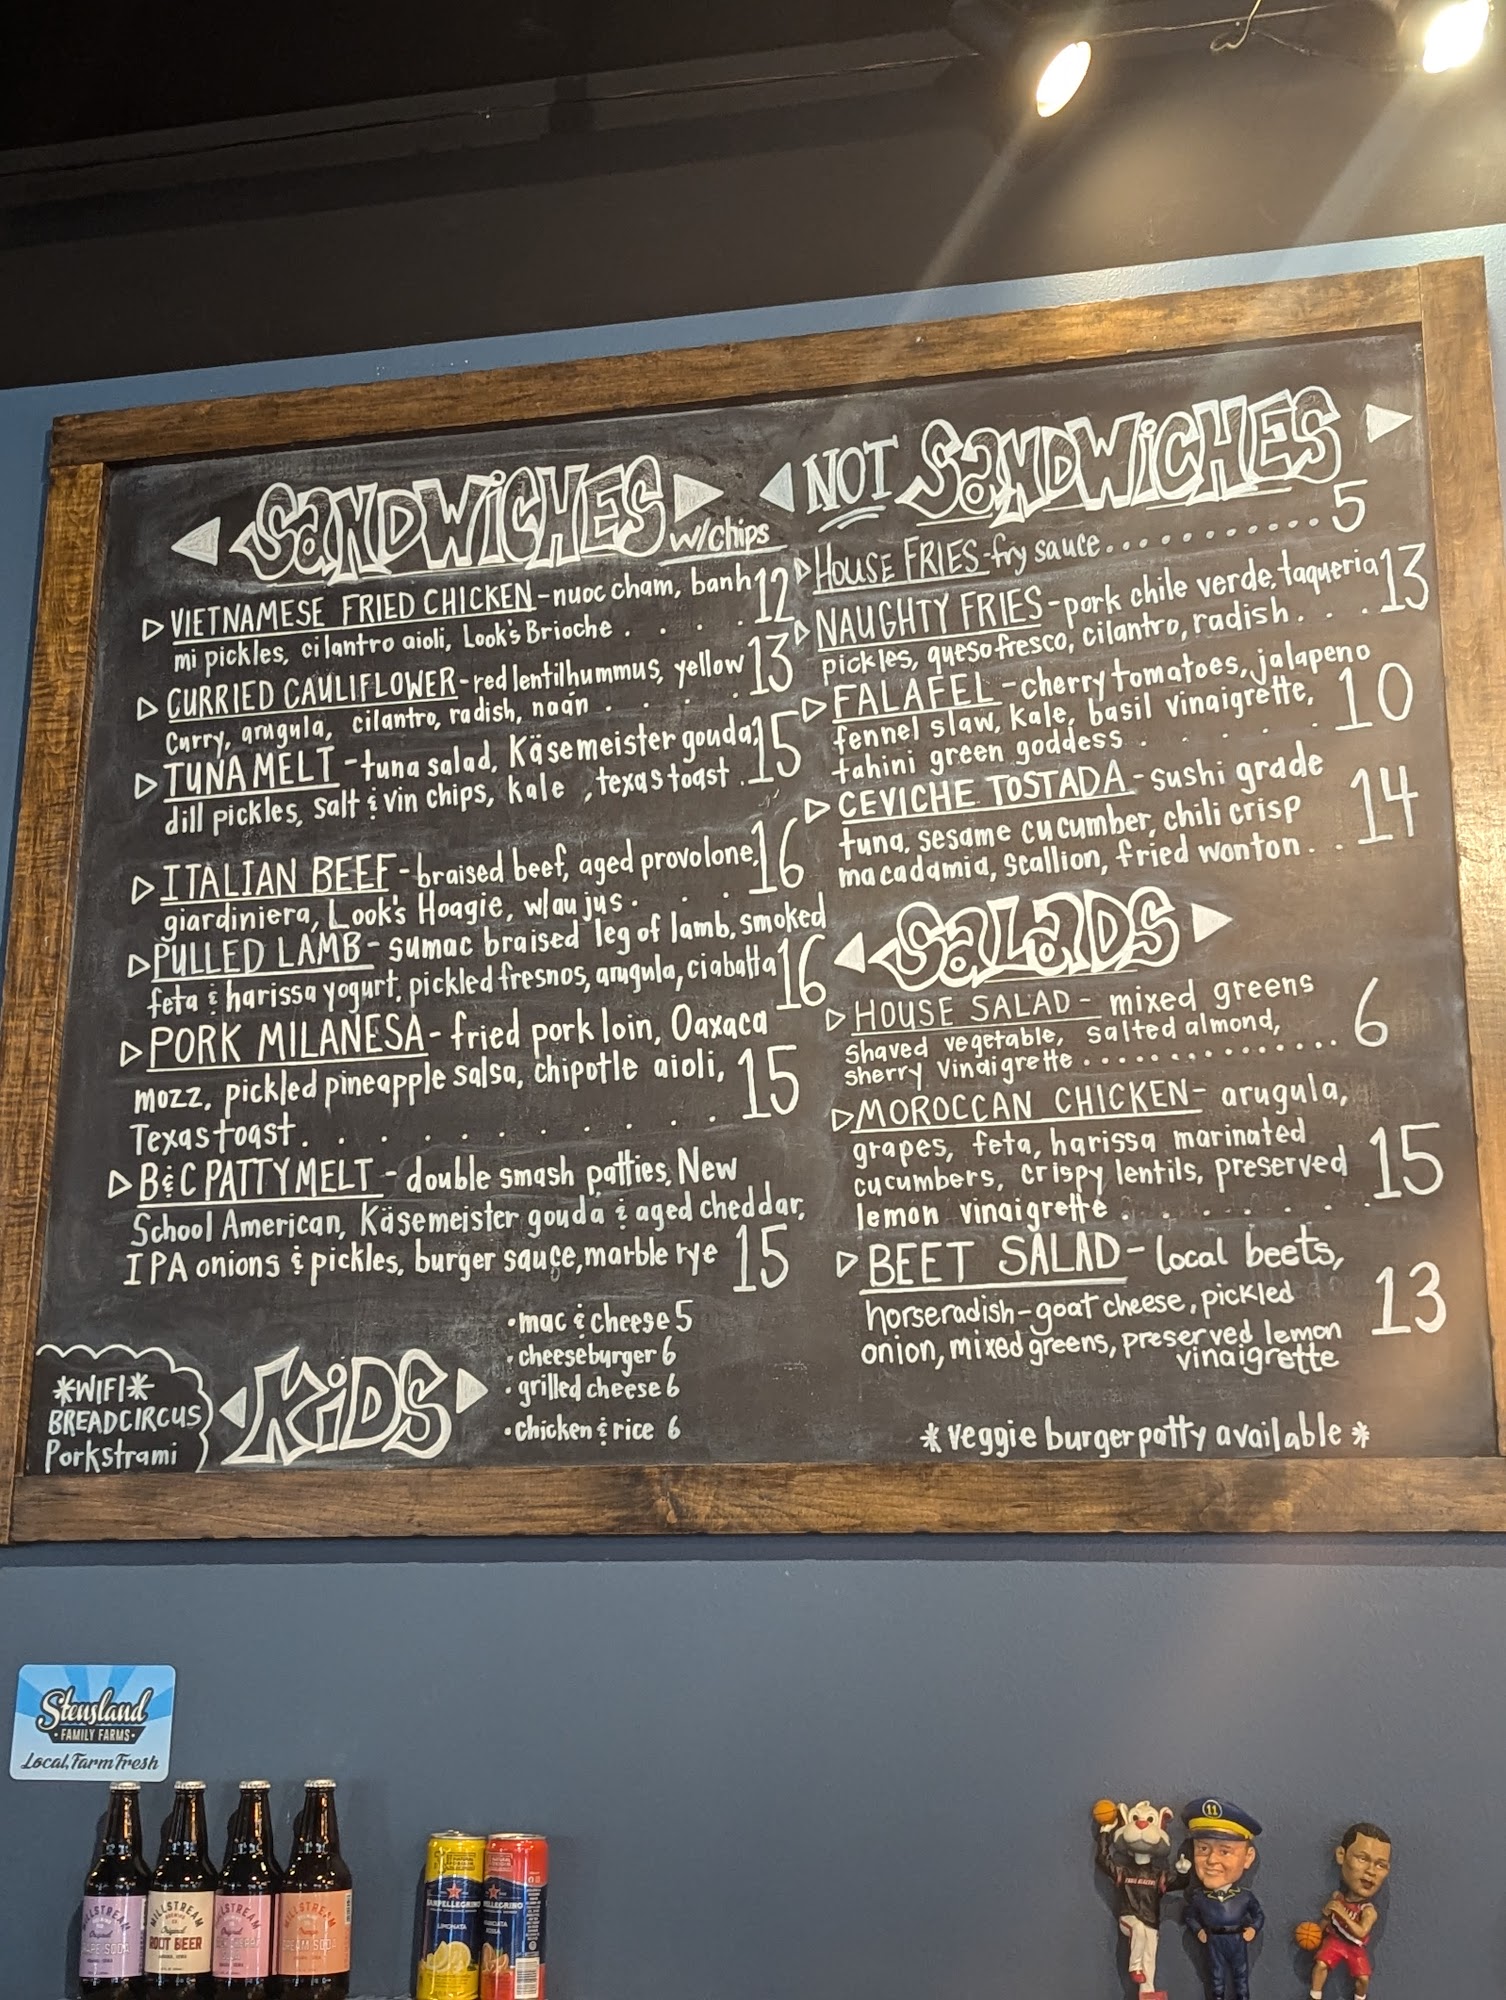 SANDWICHES w/chips
VIETNAMESE FRIED CHICKEN - nuoc cham, banh
mi pickles, cilantro aioli, Look's Brioche . . . . 12
CURRIED CAULIFLOWER - red lentil hummus, yellow
curry, arugula, cilantro, radish, naán . . . . 13
TUNA MELT - tuna salad, Käsemeister gouda,
dill pickles, salt & vin chips, kale , texas toast . 15
ITALIAN BEEF - braised beef, aged provolone,
giardiniera, Look's Hoagie, w/au jus . . . . 16
PULLED LAMB - sumac braised leg of lamb, smoked
feta & harissa yogurt, pickled fresnos, arugula, ciabatta 16
PORK MILANESA - fried pork loin, Oaxaca
mozz, pickled pineapple salsa, chipotle aioli,
Texas toast . . . . . . . . . . . 15
B&C PATTY MELT - double smash patties, New
School American, Käsemeister gouda & aged cheddar,
IPA onions & pickles, burger sauce, marble rye 15
*WIFI*
BREADCIRCUS
Porkstrami
KIDS
• mac & cheese 5
• cheeseburger 6
• grilled cheese 6
• chicken & rice 6
NOT SANDWICHES
HOUSE FRIES - fry sauce . . . . . . . . . . . 5
NAUGHTY FRIES - pork chile verde, taqueria
pickles, queso fresco, cilantro, radish . . . 13
FALAFEL - cherry tomatoes, jalapeno
fennel slaw, kale, basil vinaigrette,
tahini green goddess . . . . . . 10
CEVICHE TOSTADA - sushi grade
tuna, sesame cucumber, chili crisp
macadamia, scallion, fried wonton . . 14
SALADS
HOUSE SALAD - mixed greens
shaved vegetable, salted almond,
sherry vinaigrette . . . . . . . . . . . . . . 6
MOROCCAN CHICKEN - arugula,
grapes, feta, harissa marinated
cucumbers, crispy lentils, preserved
lemon vinaigrette . . . . . . . 15
BEET SALAD - local beets,
horseradish-goat cheese, pickled
onion, mixed greens, preserved lemon
vinaigrette 13
* veggie burger patty available *
Stensland
FAMILY FARMS
Local, Farm Fresh
MILLSTREAM
BREWING
Original
SODA
MILLSTREAM
BREWING
Original
ROOT BEER
MILLSTREAM
MILLSTREAM
SODA
SANPELLEGRINO
LIMONATA
11